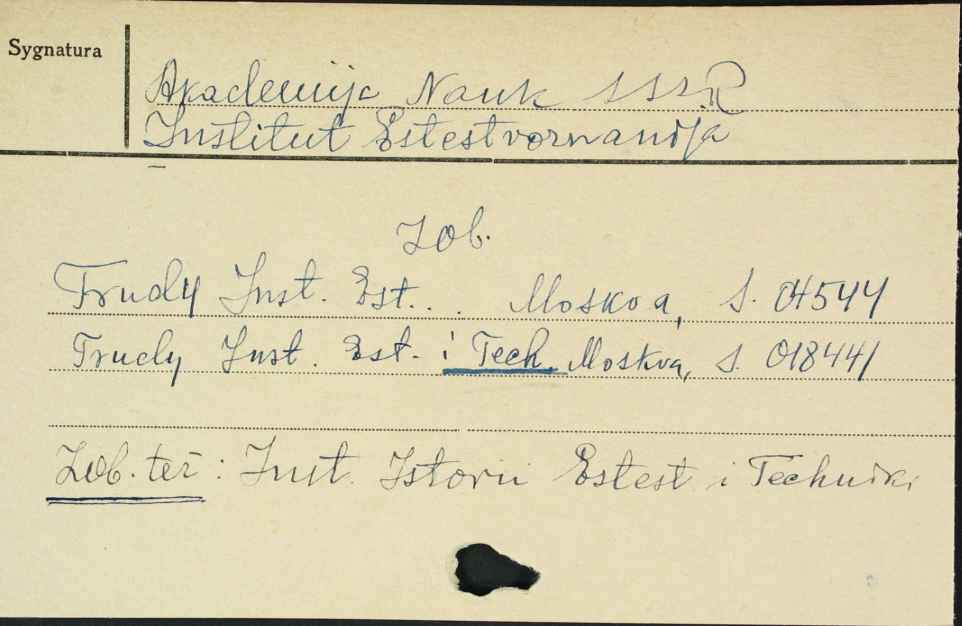 Sygnatura
Akademija Nauk SSSR
Institut Estestvoznanija
Zob.
Trudy Inst. Est. . . Moskva, S. 04544
Trudy Inst. Est. i Tech. Moskva, S. 018441
Zob. też: Inst. Istorii Estest i Techniki